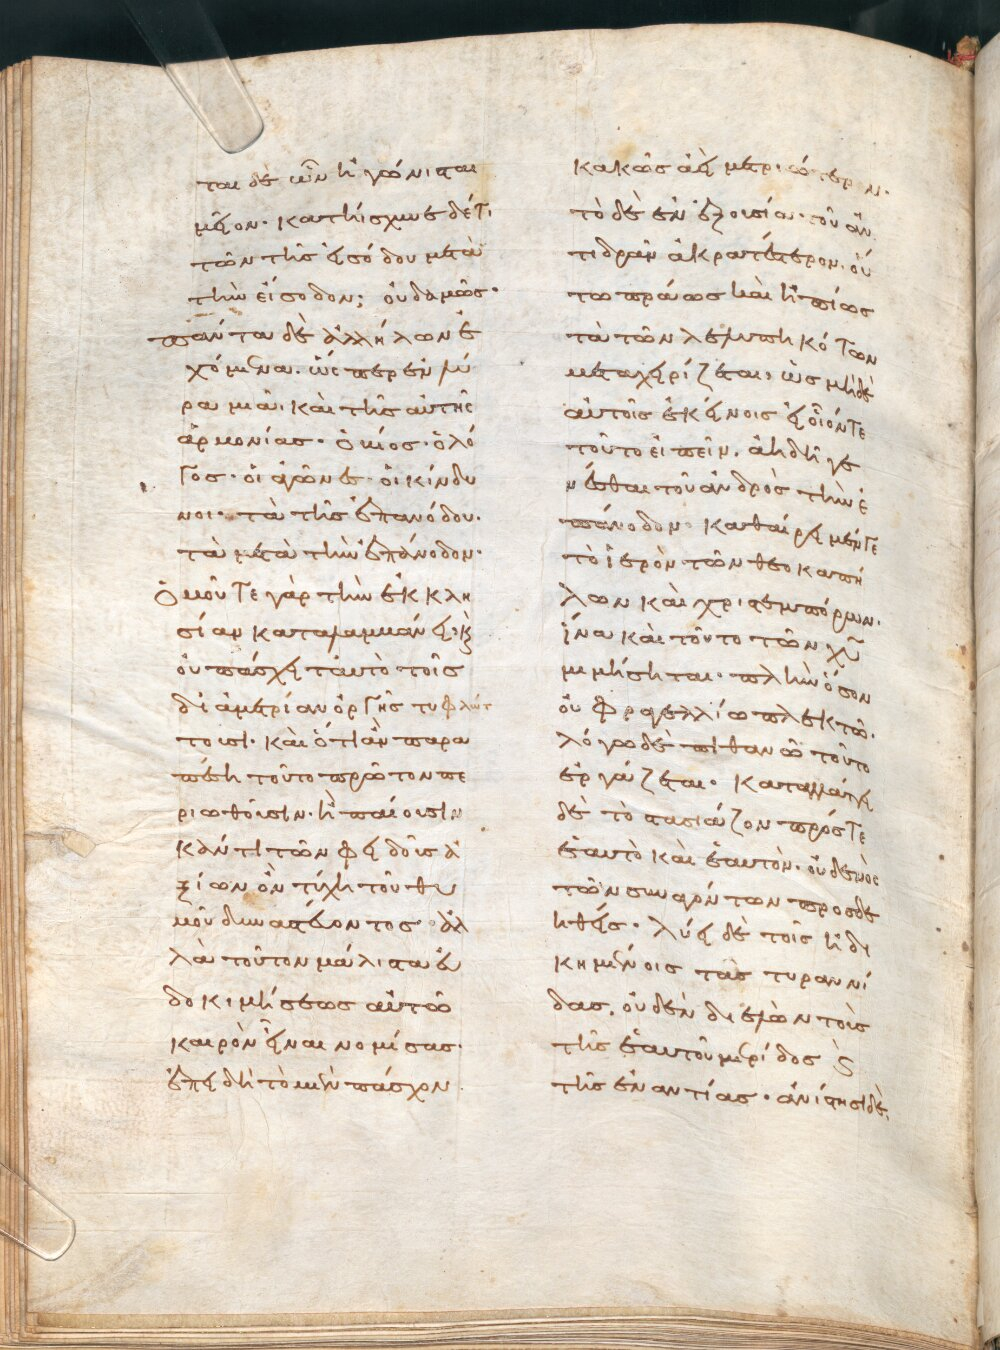 ται δὲ ὧν ἠγώνισται
μεῖον· κατήσχυνε δέ τι
τῶν τῆς εἰσόδου μετὰ
τὴν εἴσοδον; οὐδαμῶς·
πάντα δὲ ἀλλήλων ἐ
χόμενα. ὥσπερ ἐν λύ
ρα μιᾶ. καὶ τῆς αὐτῆς
ἁρμονίας· ὁ βίος· ὁ λό
γος· οἱ ἀγῶνες· οἱ κίνδυ
νοι· τὰ τῆς ἐπανόδου·
τὰ μετὰ τὴν ἐπάνοδον·
Ὁμοῦ τε γὰρ τὴν ἐκκλη
σίαν καταλαμβάνει· κ(αὶ)
οὐ πάσχει ταυτὸ τοῖς
δι ἀμετρίαν ὀργῆς τυφλώτ
τουσι· καὶ ὅτι ἂν παρα
πέση τοῦτο πρῶτον πε
ριωθοῦσιν· ἢ παίουσιν
κἄν τι τῶν φειδοῦς ἀ
ξίων ὂν τύχη τοῦ θυ
μοῦ δυναστεύοντος· ἀλ
λὰ τοῦτον μάλιστα εὐ
δοκιμήσεως αὐτῶ
καιρὸν εἶναι νομίσας·
ἐπειδὴ τὸ μὲν πάσχον
κακῶς ἀεὶ μετριώτερον·
τὸ δὲ ἐν ἐξουσία τοῦ ἀν
τιδρᾶν ἀκρατέστερον. οὕ
τω πράως καὶ ἠπίως
τὰ τῶν λελυπηκότων
μεταχειρίζεται, ὡς μηδὲ
αὐτοῖς ἐκείνοις εἰ οἷόν τε
τοῦτο εἰπεῖν. ἀηδῆ γε
νέσθαι τοῦ ἀνδρὸς τὴν ἐ
πάνοδον· καθαίρει μέν γε
τὸ ἱερὸν τῶν θεοκαπή
λων καὶ χριστεμπόρων·
ἵνα καὶ τοῦτο τῶν χῦ
μιμήσηται· πλὴν ὅσον
οὐ φραγελλίω πλεκτῶ·
λόγω δὲ πιθανῶ τοῦτο
ἐργάζεται· καταλλάττει
δὲ τὸ στασιάζον πρός τε
ἑαυτὸ καὶ ἑαυτὸν· οὐδενὸς
τῶν συναγόντων προσδε
ηθείς· λύει δὲ τοῖς ἠδι
κημένοις τὰς τυραννί
δας. οὐδὲν διελὼν τοῖς
τῆς ἑαυτοῦ μερίδος κ(αὶ)
τῆς ἐναντίας· ἀνίστησι δὲ